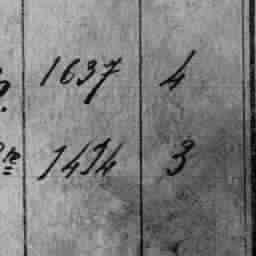 1637 4
1434 3